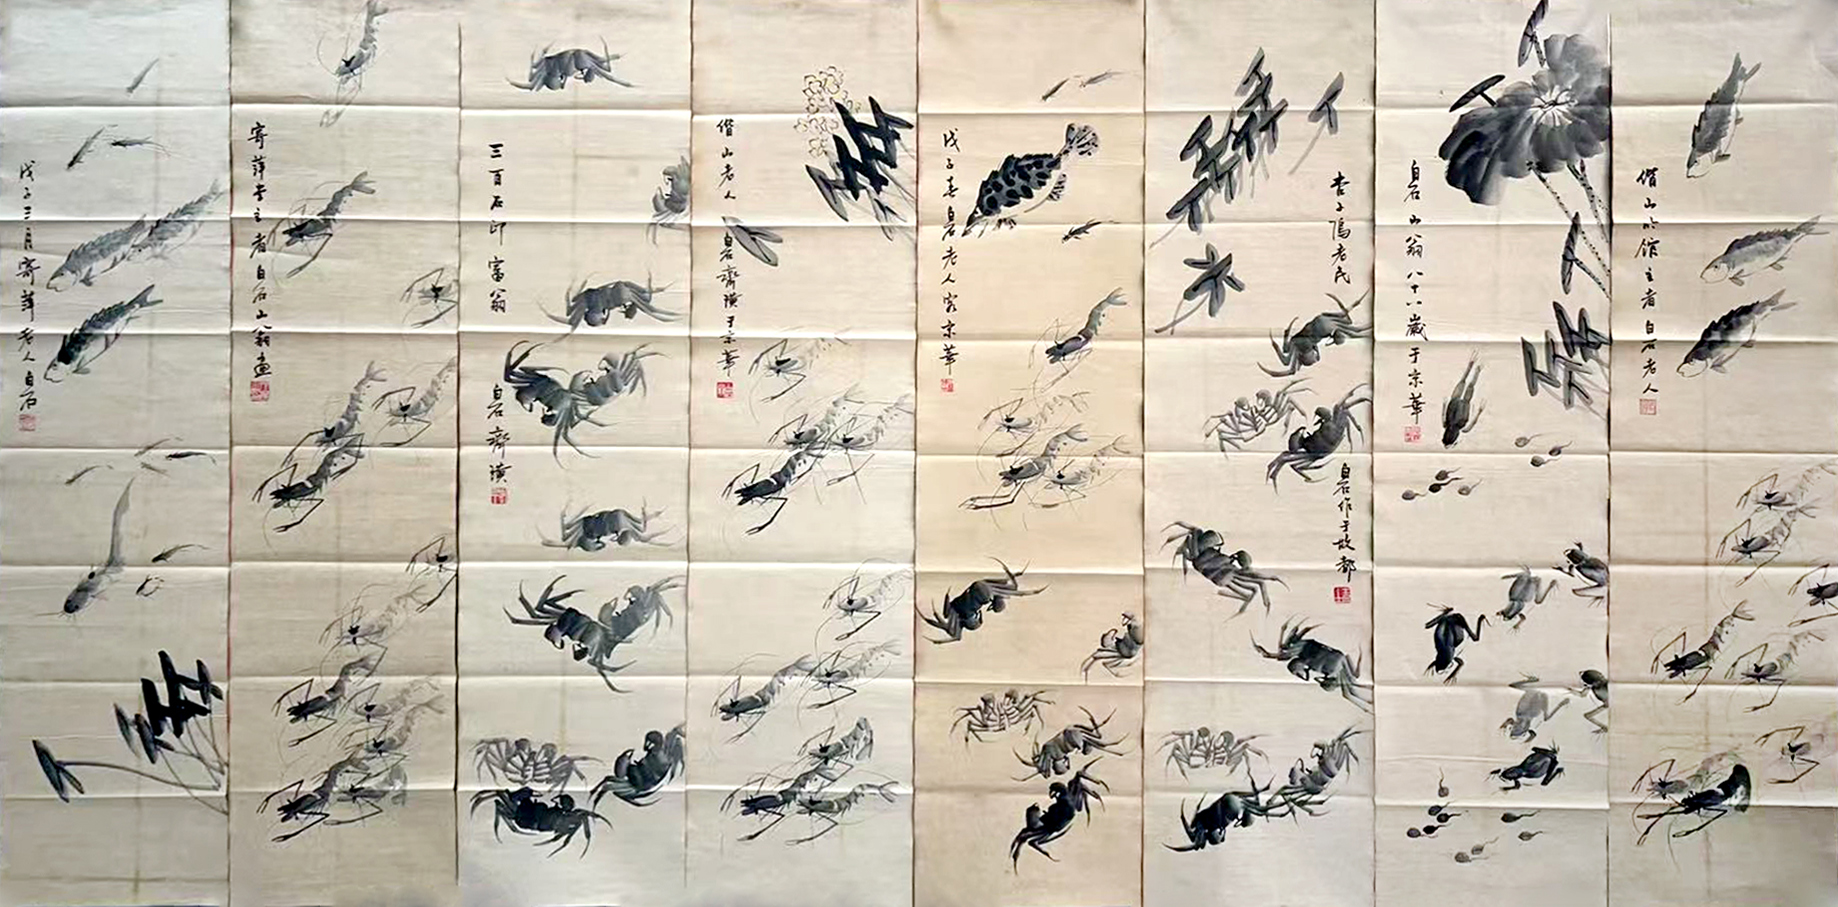 借山吟館主者白石老人
白石山翁八十八歲于京華
杏子塢老民
白石作于故都
戊子春白石老人客京華
借山老人
白石齊璜于京華
三百石印富翁
白石齊璜
寄萍堂主者白石山翁畫
戊子三月寄萍老人白石